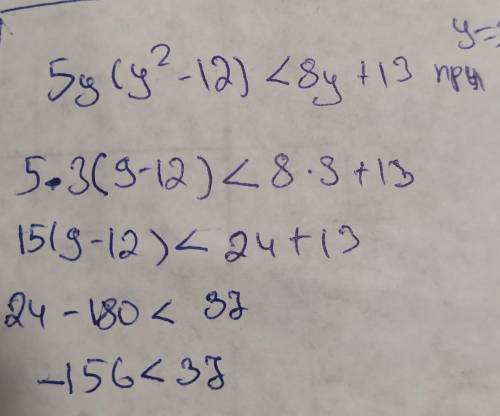 y=
5y(y²-12)<8y+13 при
5·3(9-12)<8·3+13
15(9-12)<24+13
24-180<37
-156<37